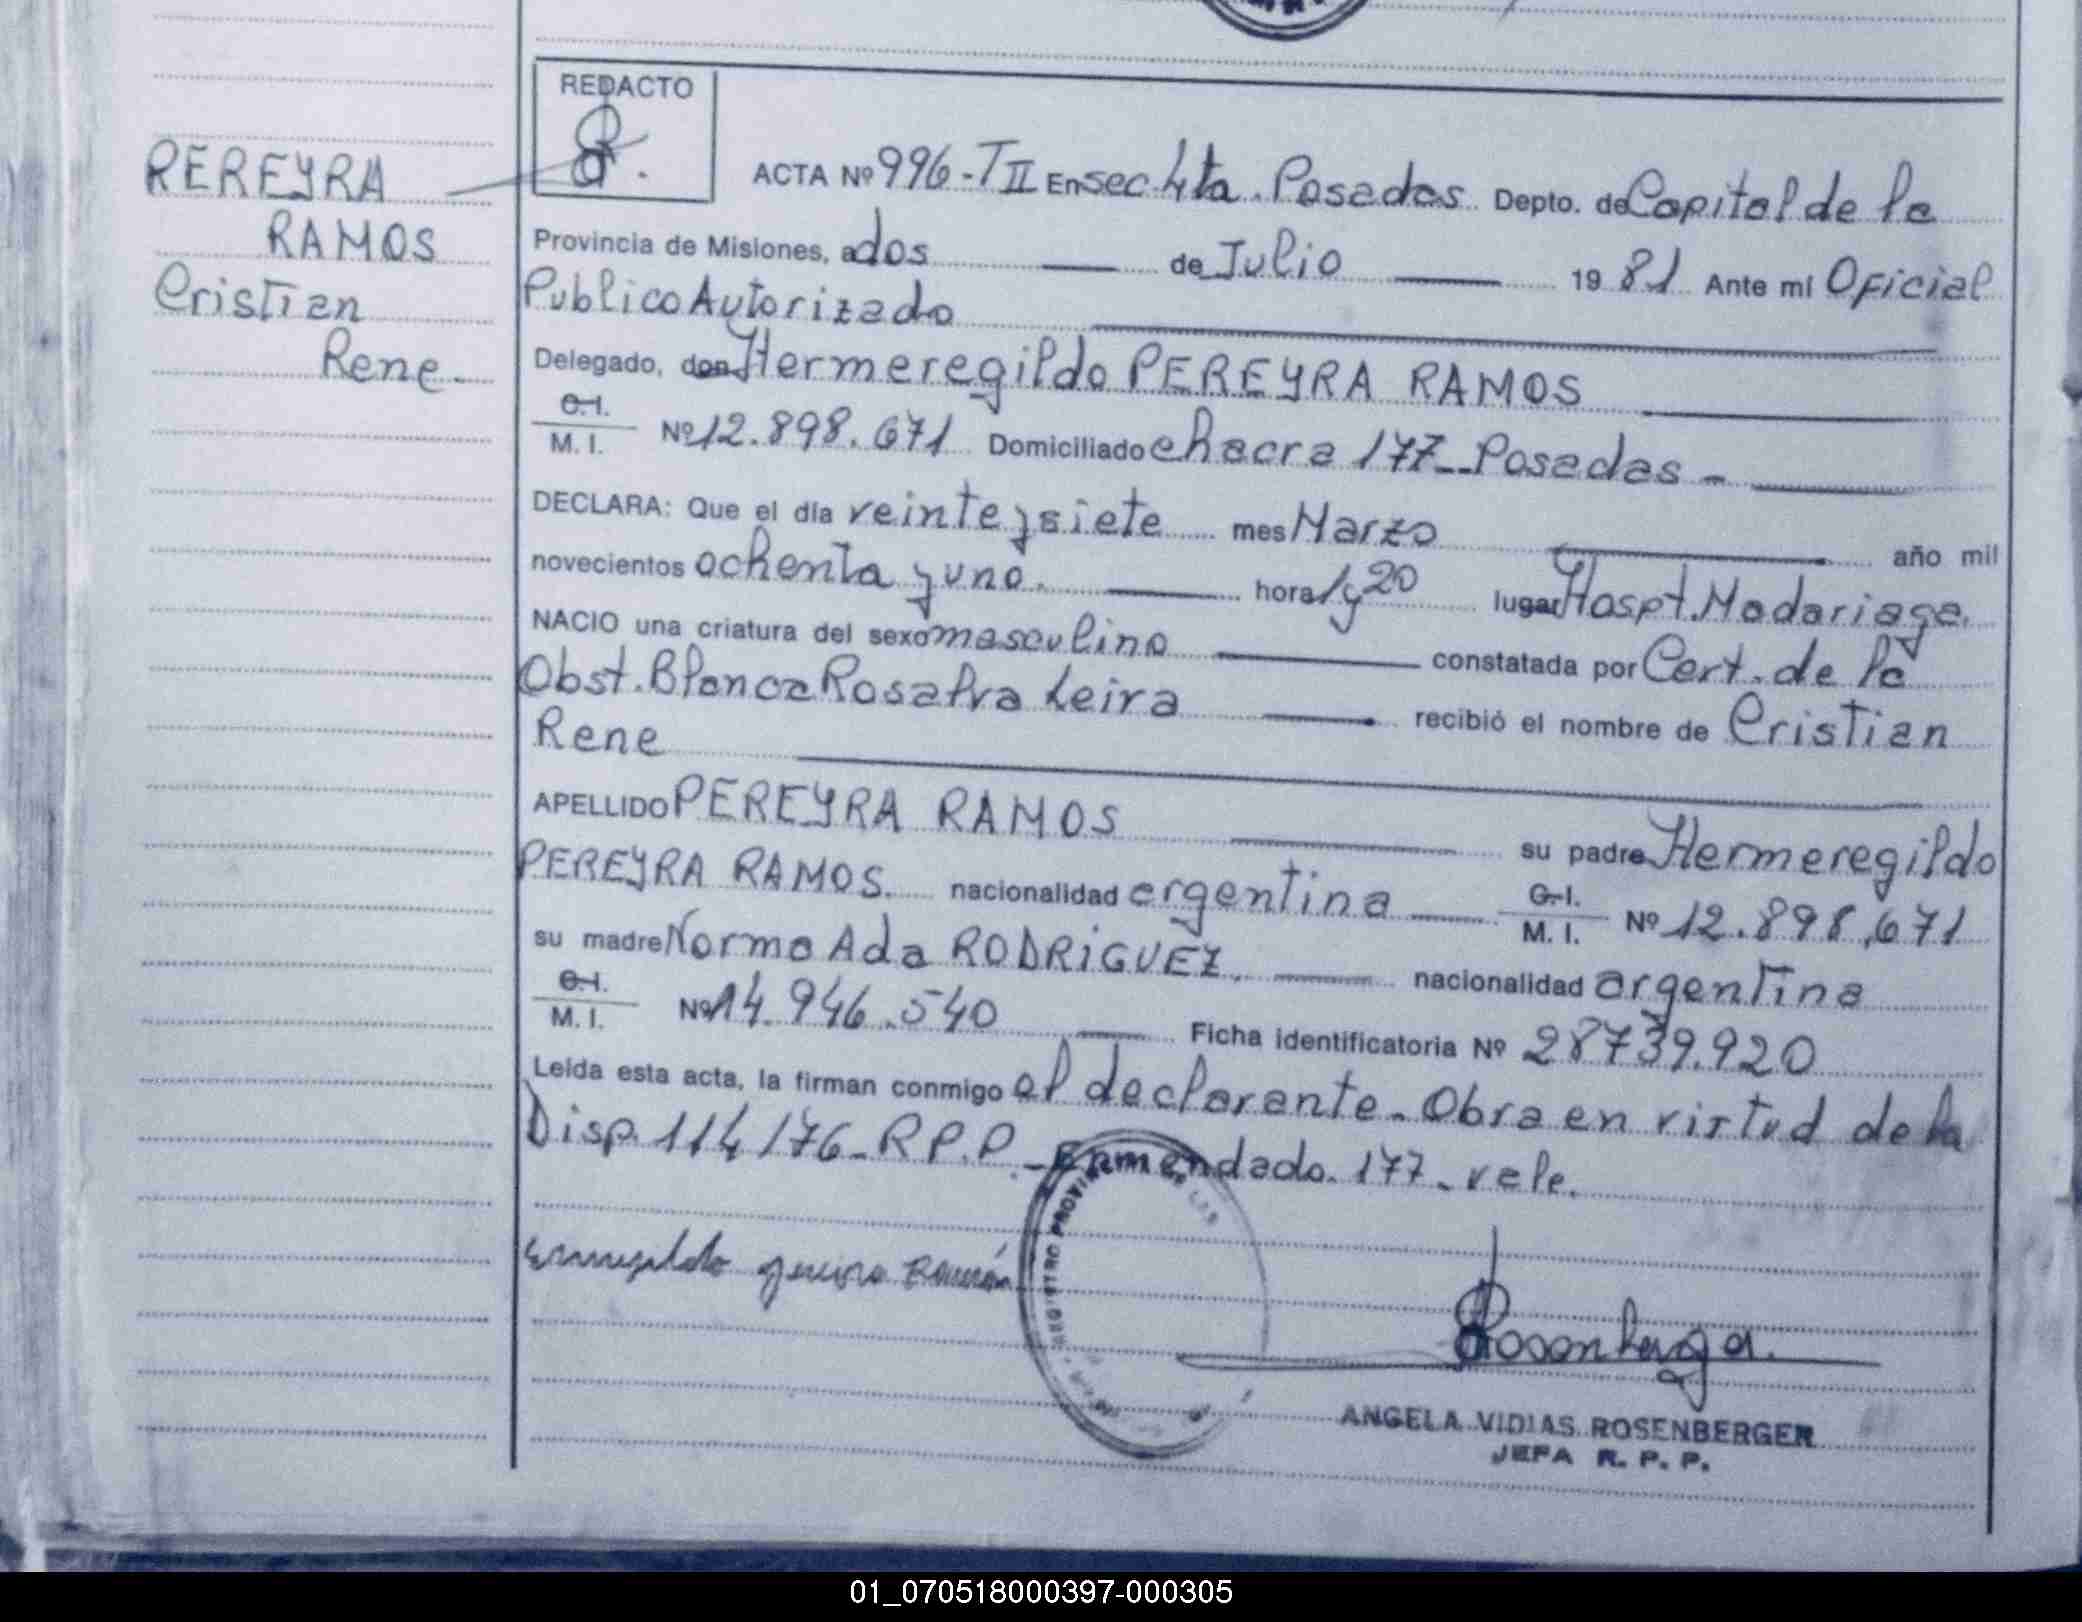 REDACTO
PEREYRA
RAMOS
Cristian
Rene
ACTA Nº 996-TII En sec. 4ta. Posadas Depto. de Capital de la
Provincia de Misiones, a dos de Julio 19 81 Ante mi Oficial
Publico Autorizado
Delegado, don Hermeregildo PEREYRA RAMOS
C.I.
M. I. Nº 12.898.671 Domiciliado chacra 177-Posadas-
DECLARA: Que el día veinte y siete mes Marzo año mil
novecientos ochenta y uno. hora 1 y 20 lugar Hospt. Madariaga.
NACIO una criatura del sexo masculino constatada por Cert. de la
Obst. Blanca Rosalva Leira recibió el nombre de Cristian
Rene
APELLIDO PEREYRA RAMOS su padre Hermeregildo
PEREYRA RAMOS. nacionalidad argentina C.I.
M. I. Nº 12.898.671
su madre Norma Ada RODRIGUEZ. nacionalidad argentina
C.I.
M. I. Nº 14.946.540 Ficha identificatoria Nº 28739.920
Leída esta acta, la firman conmigo el declarante. Obra en virtud de la
Disp. 114/76-R.P.P.-Enmendado. 177-vale.
REGISTRO PROVINCIAL DE LAS
Rosenberger.
ANGELA VIDIAS ROSENBERGER
JEFA R. P. P.
01_070518000397-000305